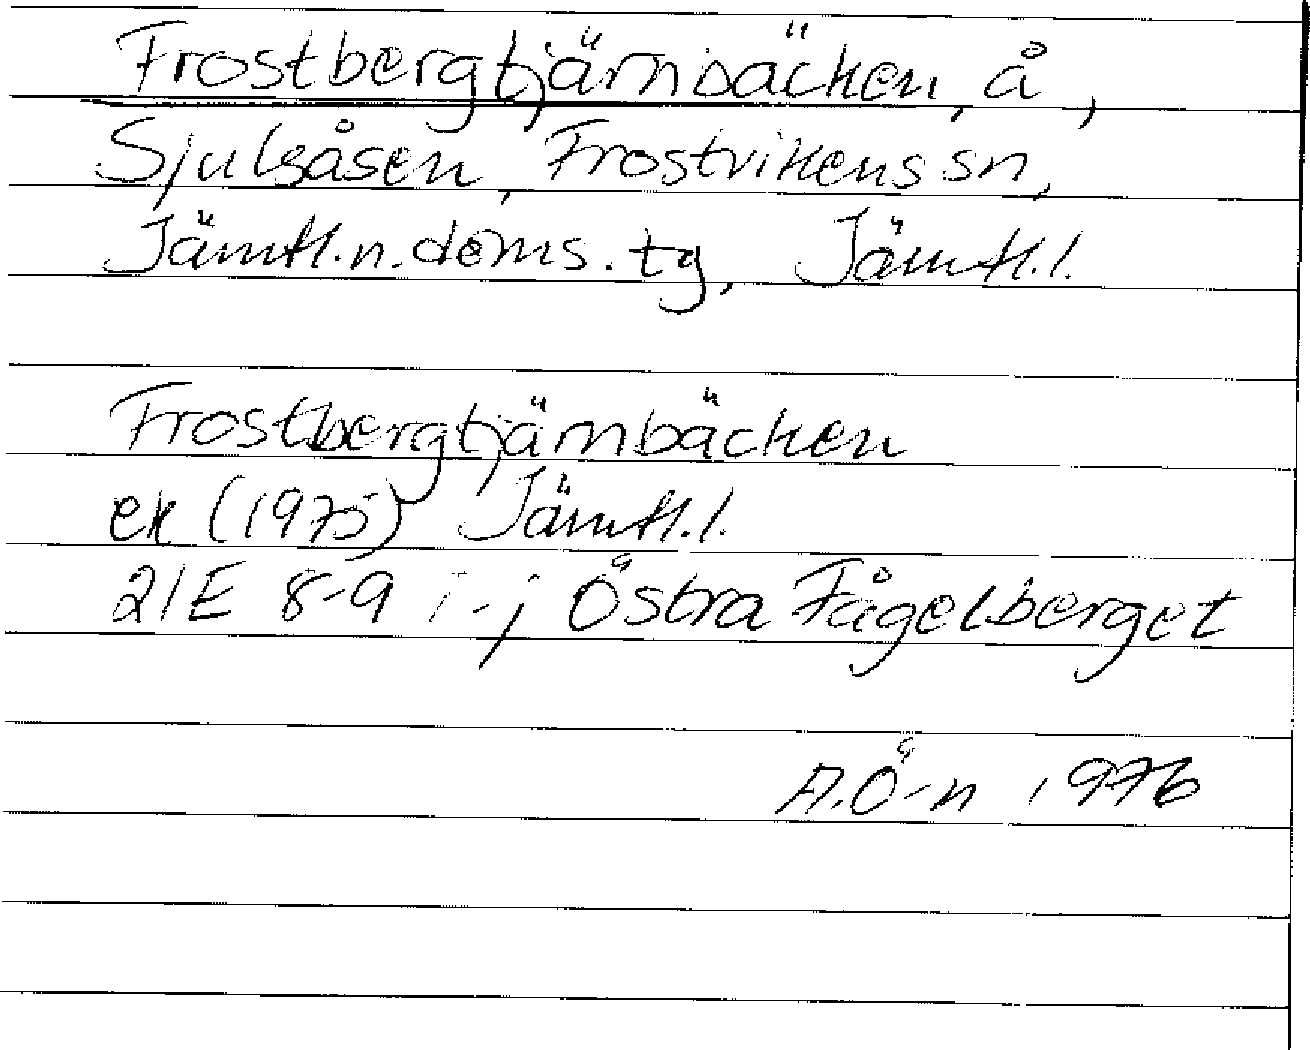 Frostbergtjärnbäcken, å,
Sjulsåsen, Frostvikens sn,
Jämtl. n. doms. tg, Jämtl. l.
Frostbergtjärnbäcken
ek (1975) Jämtl. l.
21E 8-9 i-j Östra Fågelberget
A.Ö-n 1976